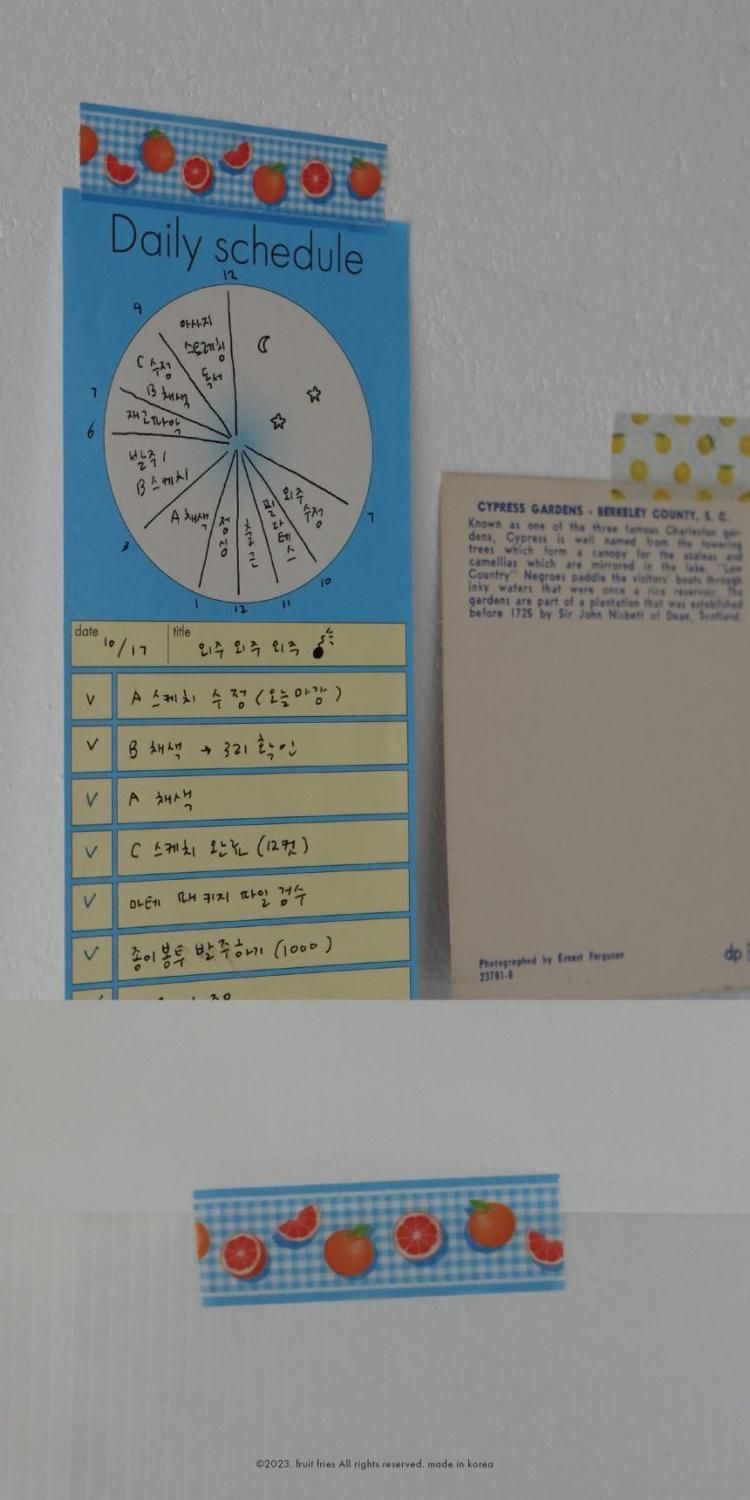 Daily schedule
12
9
마사지
스트레칭
독서
C 수정
7
B 채색
재고파악
6
발주 /
B 스케치
3
A 채색
점심
출근
필라테스
외주
수정
7
10
11
12
1
date 10/17 title 외주 외주 외주
v A 스케치 수정 (오늘마감)
v B 채색 → 3리 확인
v A 채색
v C 스케치 완료 (12컷)
v 마테 패키지 파일 검수
v 종이봉투 발주하기 (1000)
CYPRESS GARDENS - BERKELEY COUNTY, S. C.
Known as one of the three famous Charleston gar-
dens, Cypress is well named from the towering
trees which form a canopy for the azaleas and
camellias which are mirrored in the lake. "Low
Country" Negroes paddle the visitors' boats through
inky waters that were once a rice reservoir. The
gardens are part of a plantation that was established
before 1725 by Sir John Nisbett of Dean, Scotland.
Photographed by Ernest Ferguson
23781-B
dp
©2023. fruit fries All rights reserved. made in korea